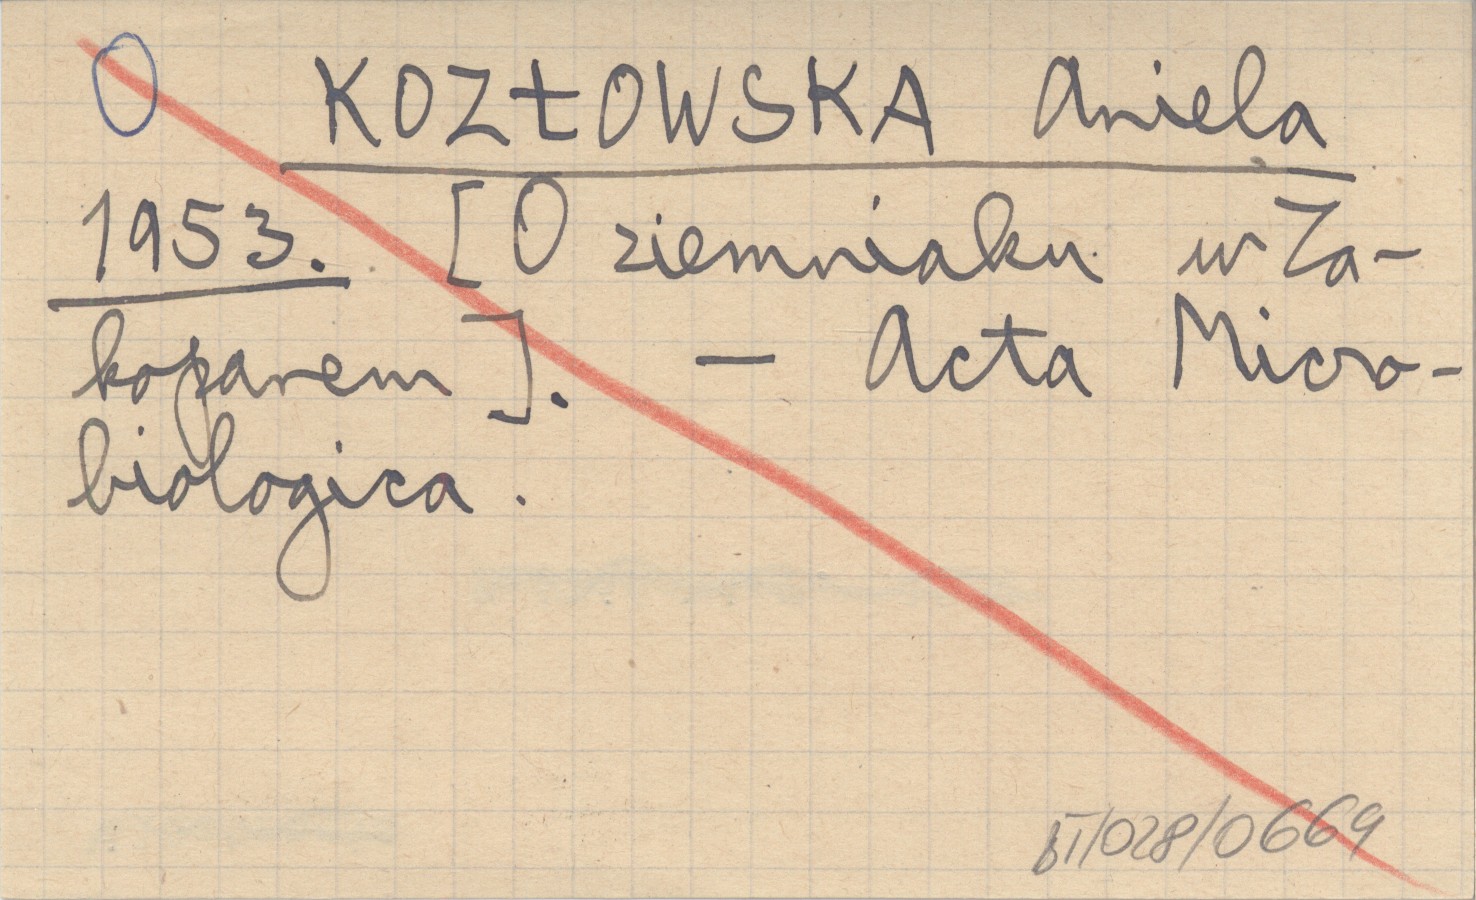 O KOZŁOWSKA Aniela
1953. [O ziemniaku w Za-
kopanem]. — Acta Micro-
biologica.
BT/028/0669